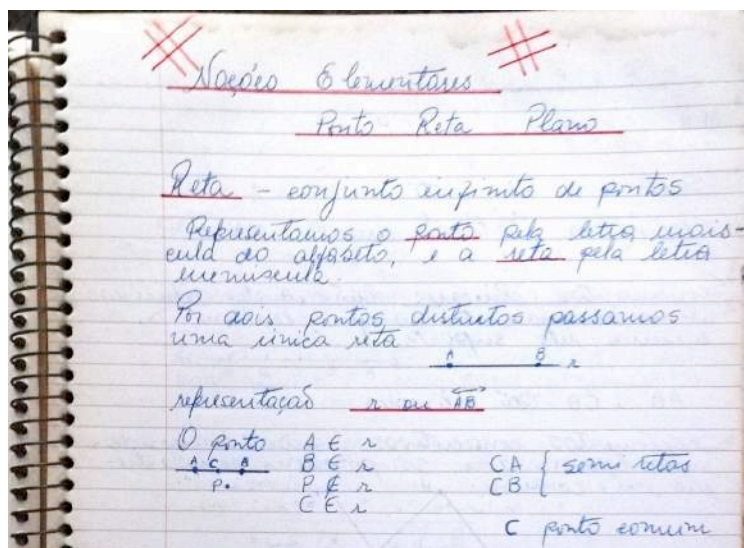 Noções Elementares
Ponto Reta Plano
Reta - conjunto infinito de pontos
Representamos o ponto pela letra maiús-
cula do alfabeto, e a reta pela letra
minúscula.
Por dois pontos distintos passamos
uma única reta
A B r
representação r ou AB
O ponto A ∈ r
A C B B ∈ r CA { semi retas
P. P ∉ r CB
C ∈ r
C ponto comum